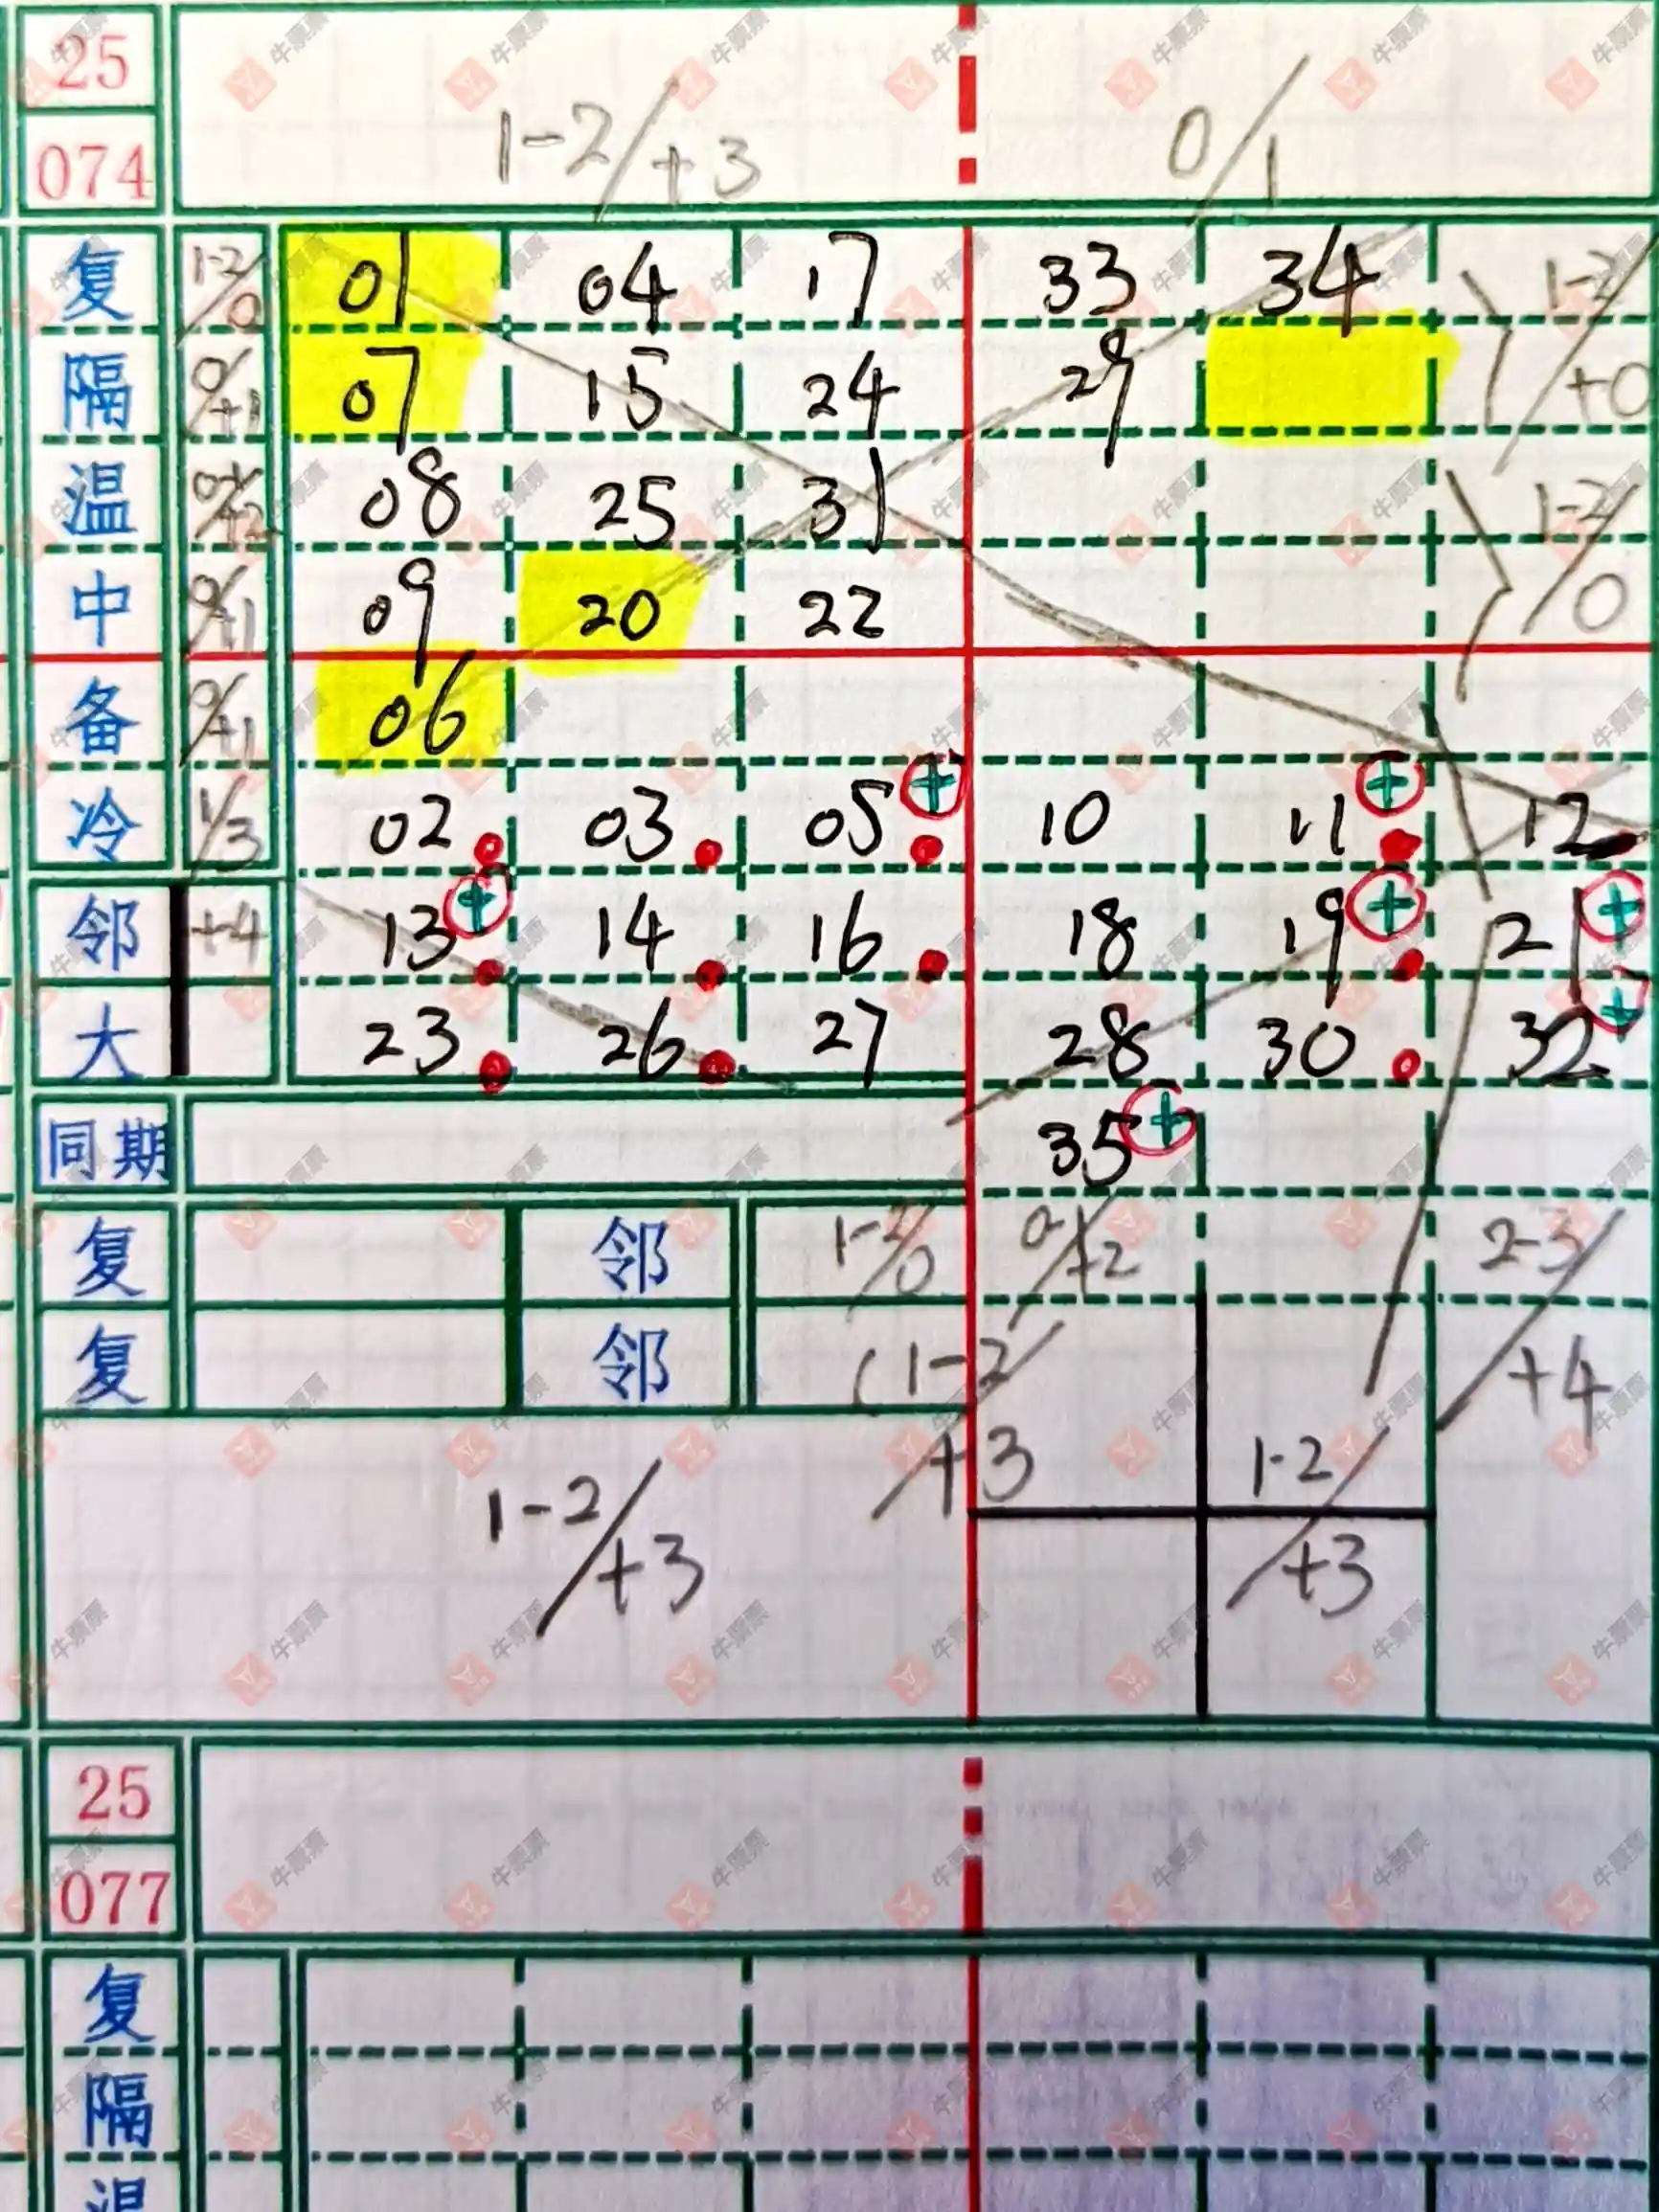 25
074 1-2/+3 0/1
复 1-2/0 01 04 17 33 34 1-2/+0
隔 0/+1 07 15 24 29
温 08 25 31 1-2/0
中 0/+1 09 20 22
备 0/+1 06
冷 1/3 02 03 05 + 10 11 + 12
邻 +4 13 + 14 16 18 19 + 21 +
大 23 26 27 28 30 32 +
同期 35 +
复 邻 1-2/0 0-1/+2 2-3/+4
复 邻 (1-2/+3
1-2/+3 1-2/+3
25
077
复
隔
温
牛票票